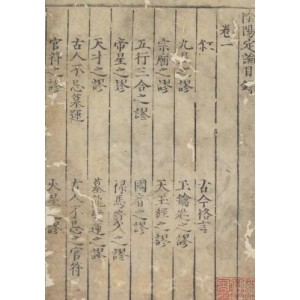 陰陽定論目錄
卷一
敘 古今格言
九之謬 玉之謬
宗廟之謬 天玉經之謬
五行三合之謬 國之謬
帝星之謬 祿馬貴人之謬
天才之謬 墓龍變運之謬
古人不忌墓運 古人不忌之官符
官符之謬 火星之謬